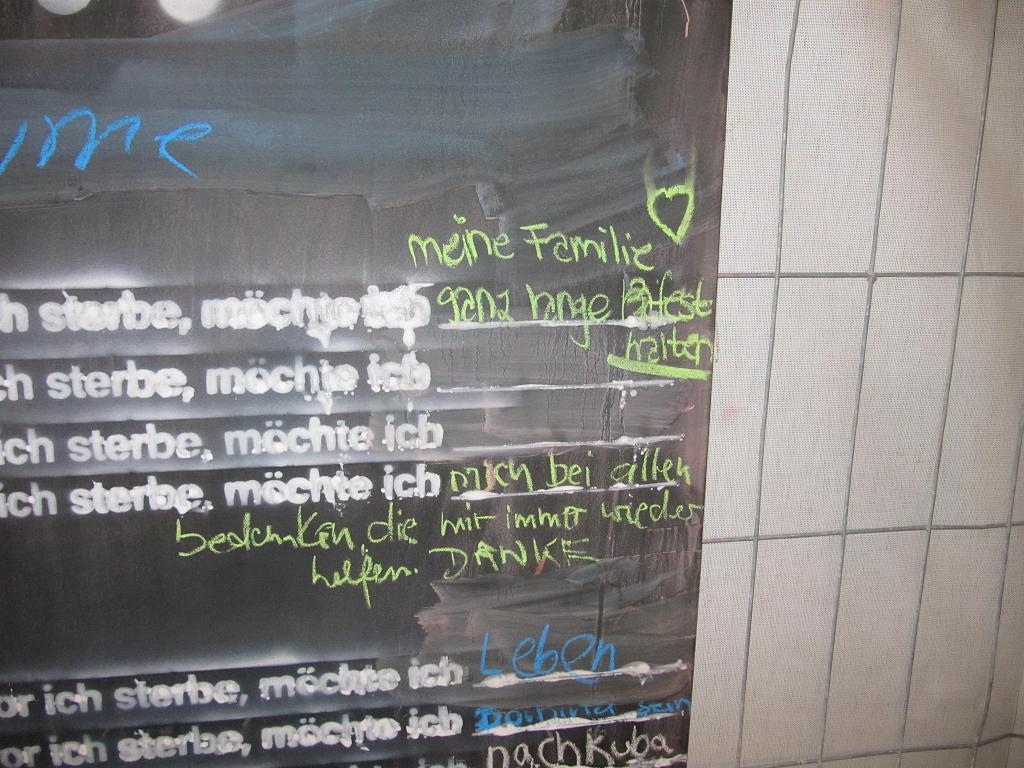 me
meine Familie
ch sterbe, möchte ich ganz lange
halten
ch sterbe, möchte ich
ich sterbe, möchte ich
ich sterbe, möchte ich mich bei allen
bedanken, die mir immer wieder
helfen. DANKE
or ich sterbe, möchte ich Leben
or ich sterbe, möchte ich sein
nach Kuba